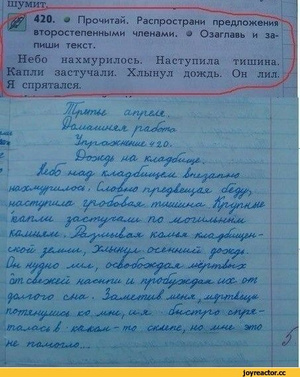 шумит.
420. Прочитай. Распространи предложения
второстепенными членами. Озаглавь и за-
пиши текст.
Небо нахмурилось. Наступила тишина.
Капли застучали. Хлынул дождь. Он лил.
Я спрятался.
Третье апреля.
Домашнее работа
Упражнение 420.
Дождь на кладбище.
Небо над кладбищем внезапно
нахмурилось. Словно предвещая беду,
наступила гробовая тишина. Крупные
капли застучали по могильным
камням. Размывая комья кладбищен-
ской земли, хлынул осенний дождь.
Он нудно лил, освобождая мёртвых
от свежей насыпи и пробуждая их от
долгого сна. Заметив меня, мертвецы
потянулись ко мне, и я быстро спря-
талась в каком-то склепе, но мне это
не помогло...
5
joyreactor.cc